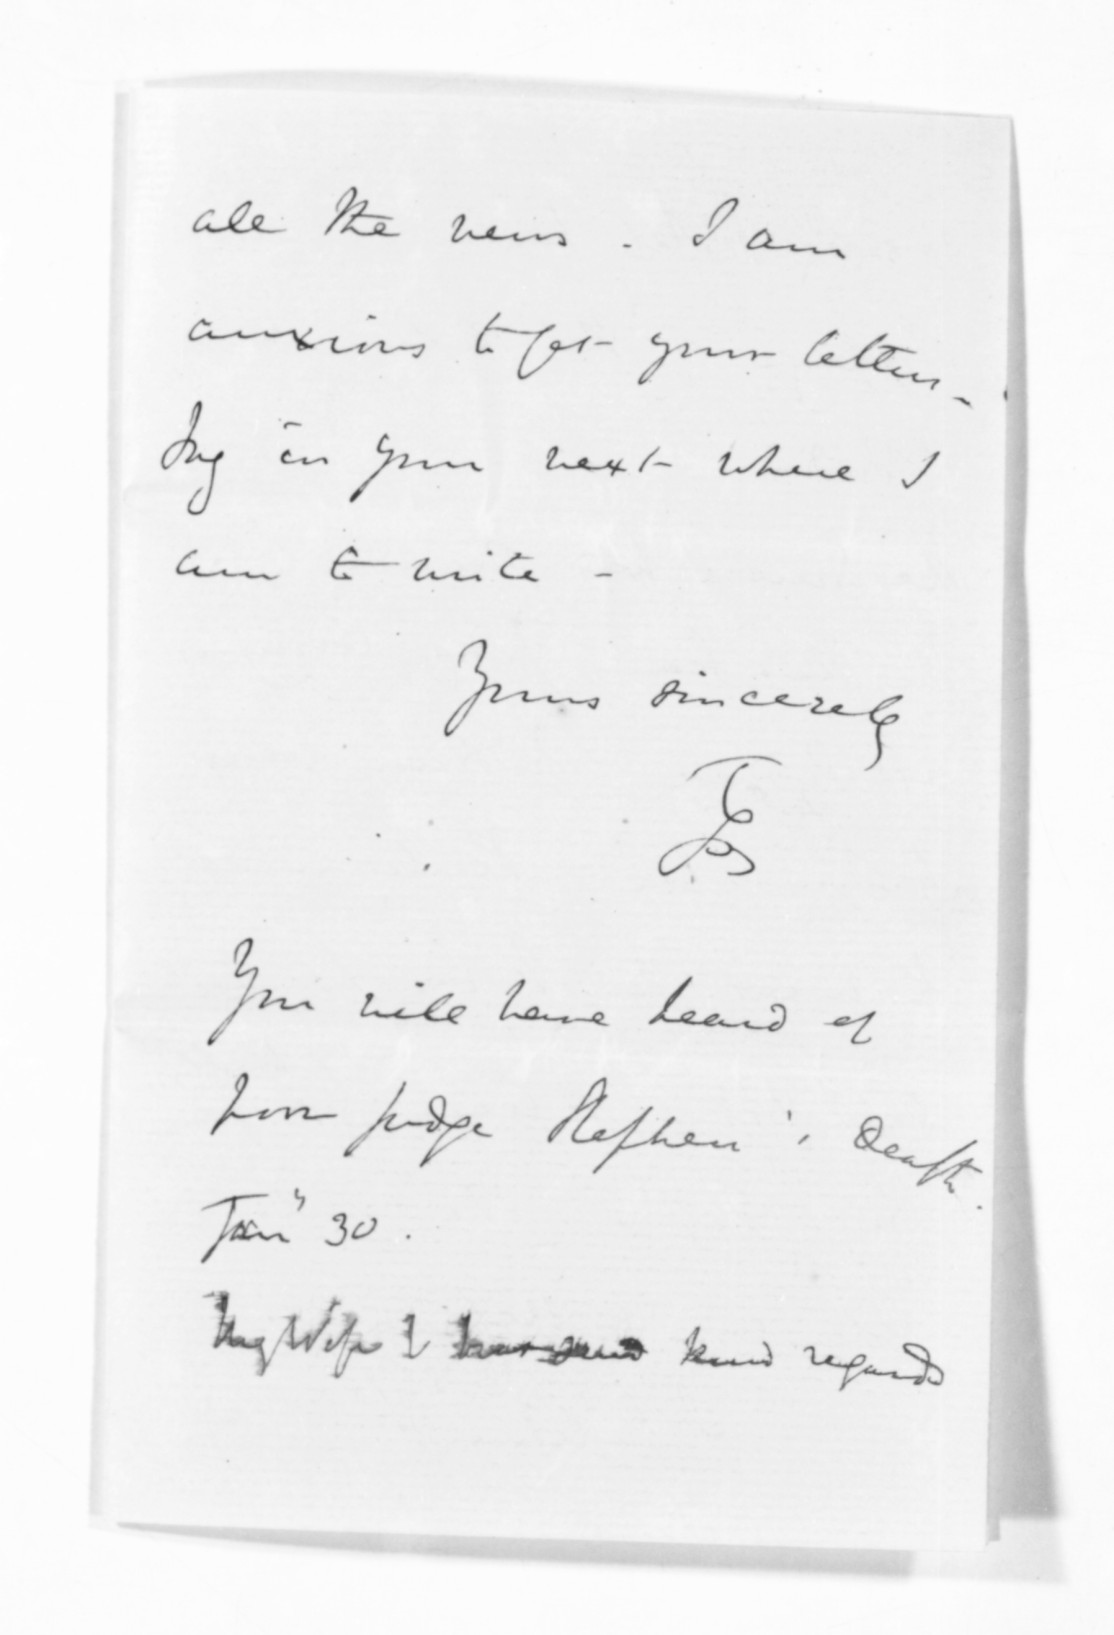 all the news. I am
anxious to get your letters -
Say in your next where I
am to write -
Yours sincerely
You will have heard of
poor Judge Stephen's death.
Jan" 30.
My Wife kind regards